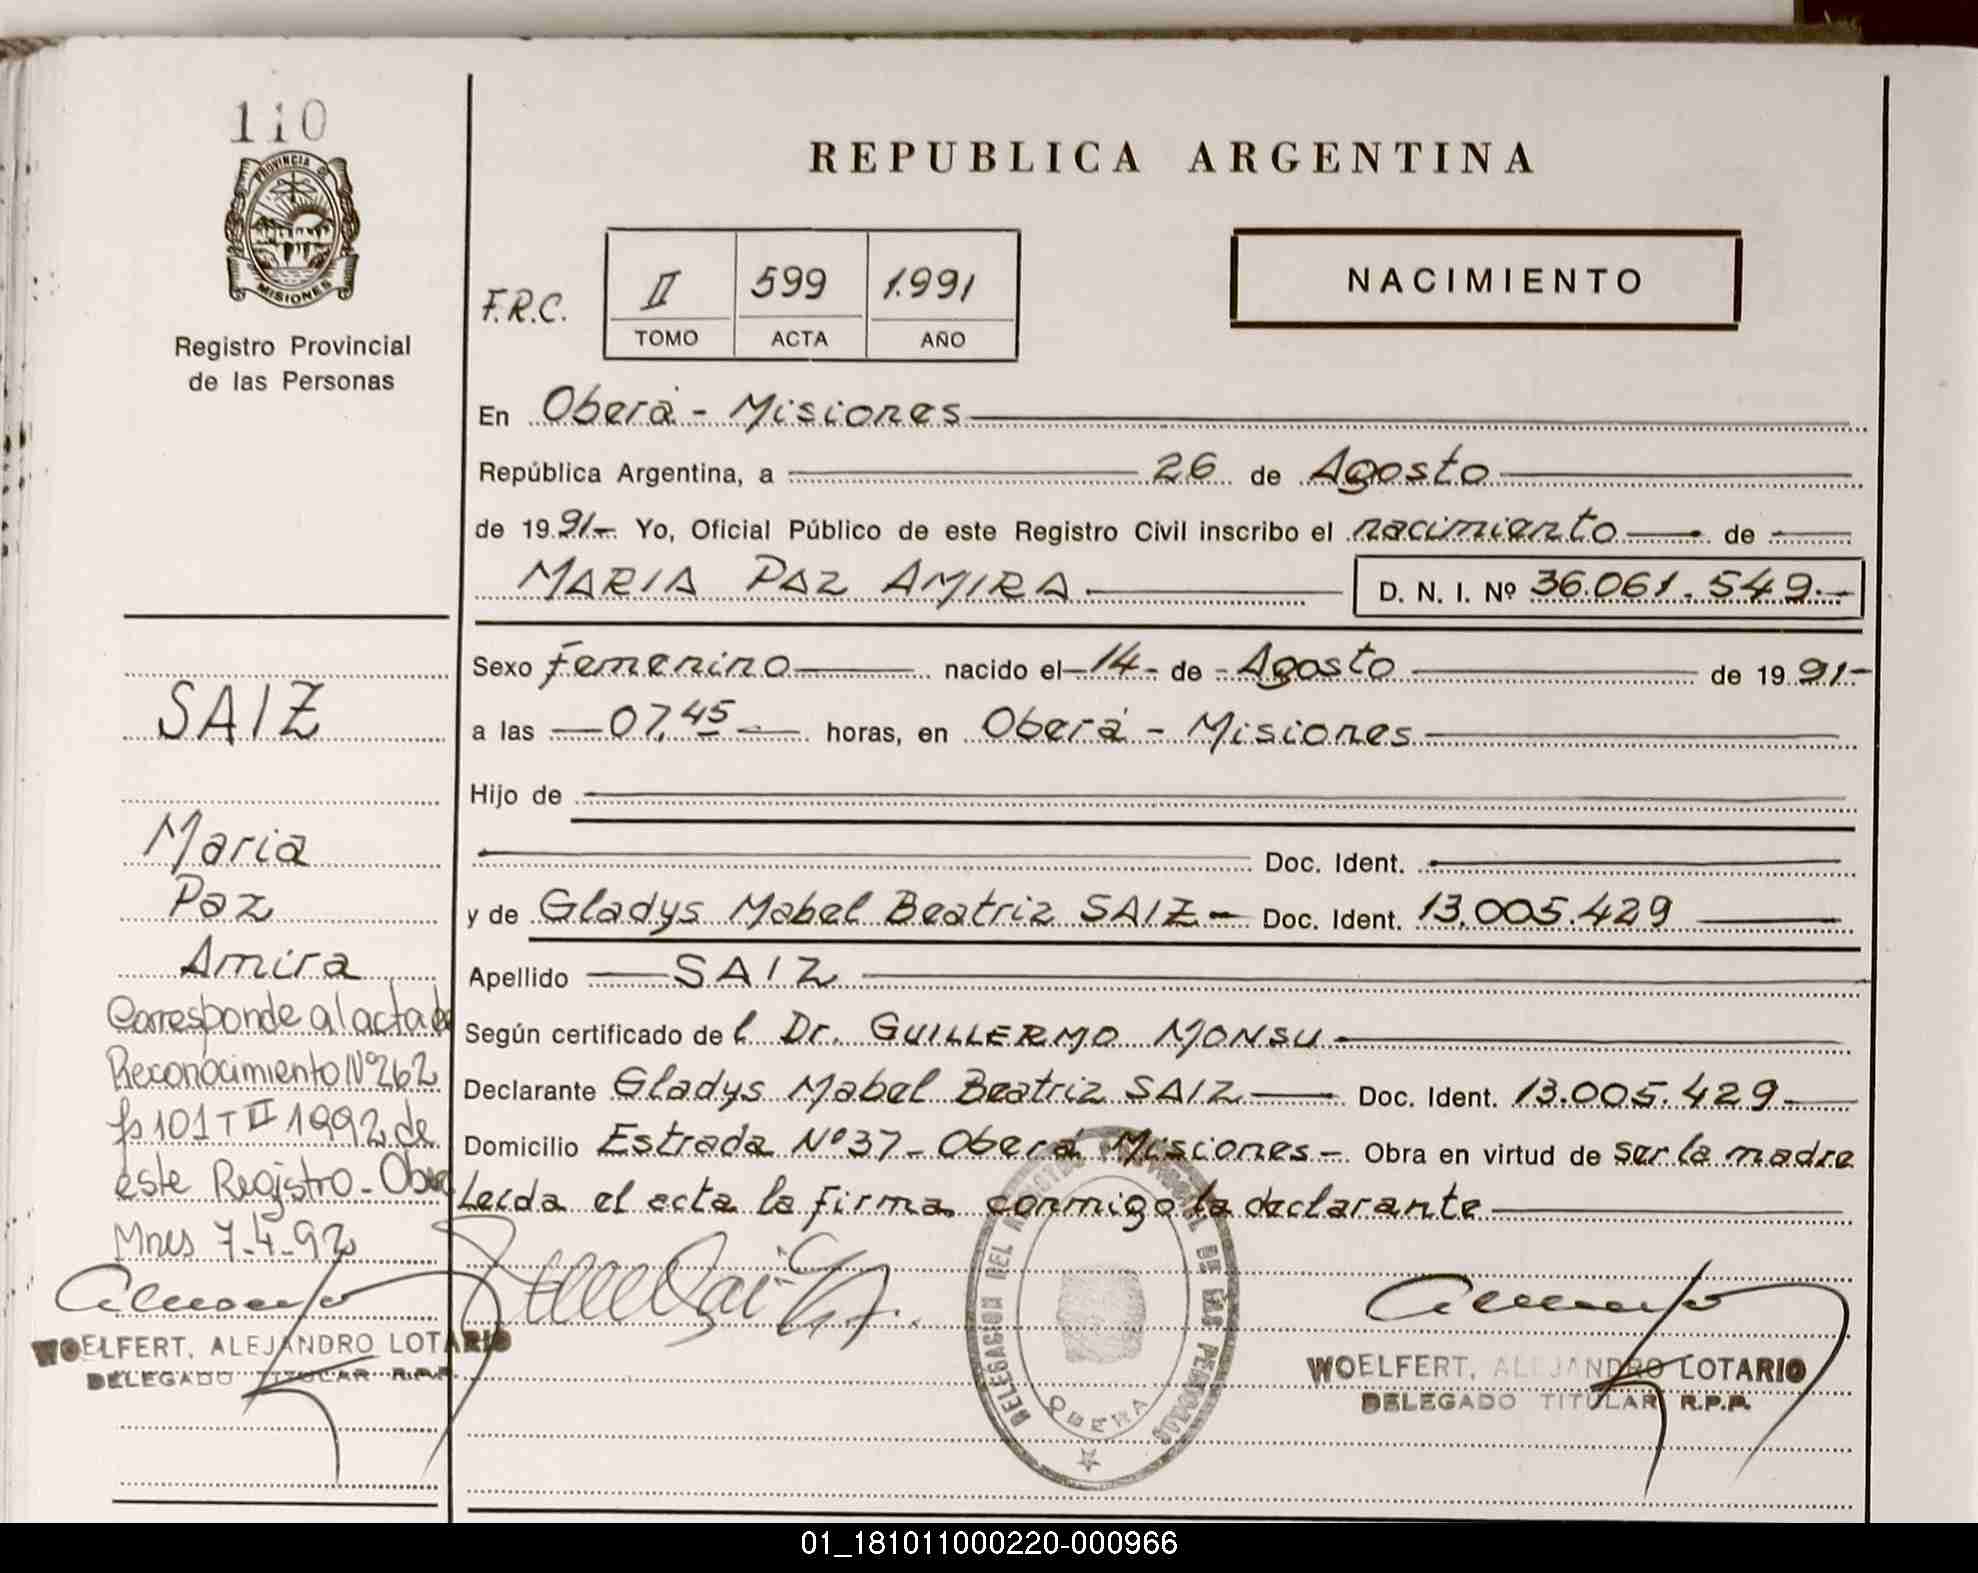 110
PROVINCIA DE
MISIONES
Registro Provincial
de las Personas
REPUBLICA ARGENTINA
F.R.C.
II 599 1.991
TOMO ACTA AÑO
NACIMIENTO
En Oberá - Misiones
República Argentina, a 26 de Agosto
de 1991- Yo, Oficial Público de este Registro Civil inscribo el nacimiento de
MARIA PAZ AMIRA D. N. I. Nº 36.061.549.-
Sexo Femenino nacido el -14- de - Agosto de 1991-
a las 07,45 horas, en Oberá - Misiones
Hijo de
Doc. Ident.
y de Gladys Mabel Beatriz SAIZ - Doc. Ident. 13.005.429
Apellido SAIZ
Según certificado de l Dr. GUILLERMO MONSU
Declarante Gladys Mabel Beatriz SAIZ Doc. Ident. 13.005.429
Domicilio Estrada Nº 37 - Oberá Misiones - Obra en virtud de ser la madre
Leída el acta la firma conmigo la declarante
SAIZ
Maria
Paz
Amira
Corresponde al acta de
Reconocimiento Nº 262
fs 101 T II 1992 de
este Registro - Oberá
Mnes 7-4-92
WOELFERT, ALEJANDRO LOTARIO
DELEGADO TITULAR R.P.P.
DELEGACION DEL REGISTRO PROVINCIAL DE LAS PERSONAS
OBERA
WOELFERT, ALEJANDRO LOTARIO
DELEGADO TITULAR R.P.P.
01_181011000220-000966